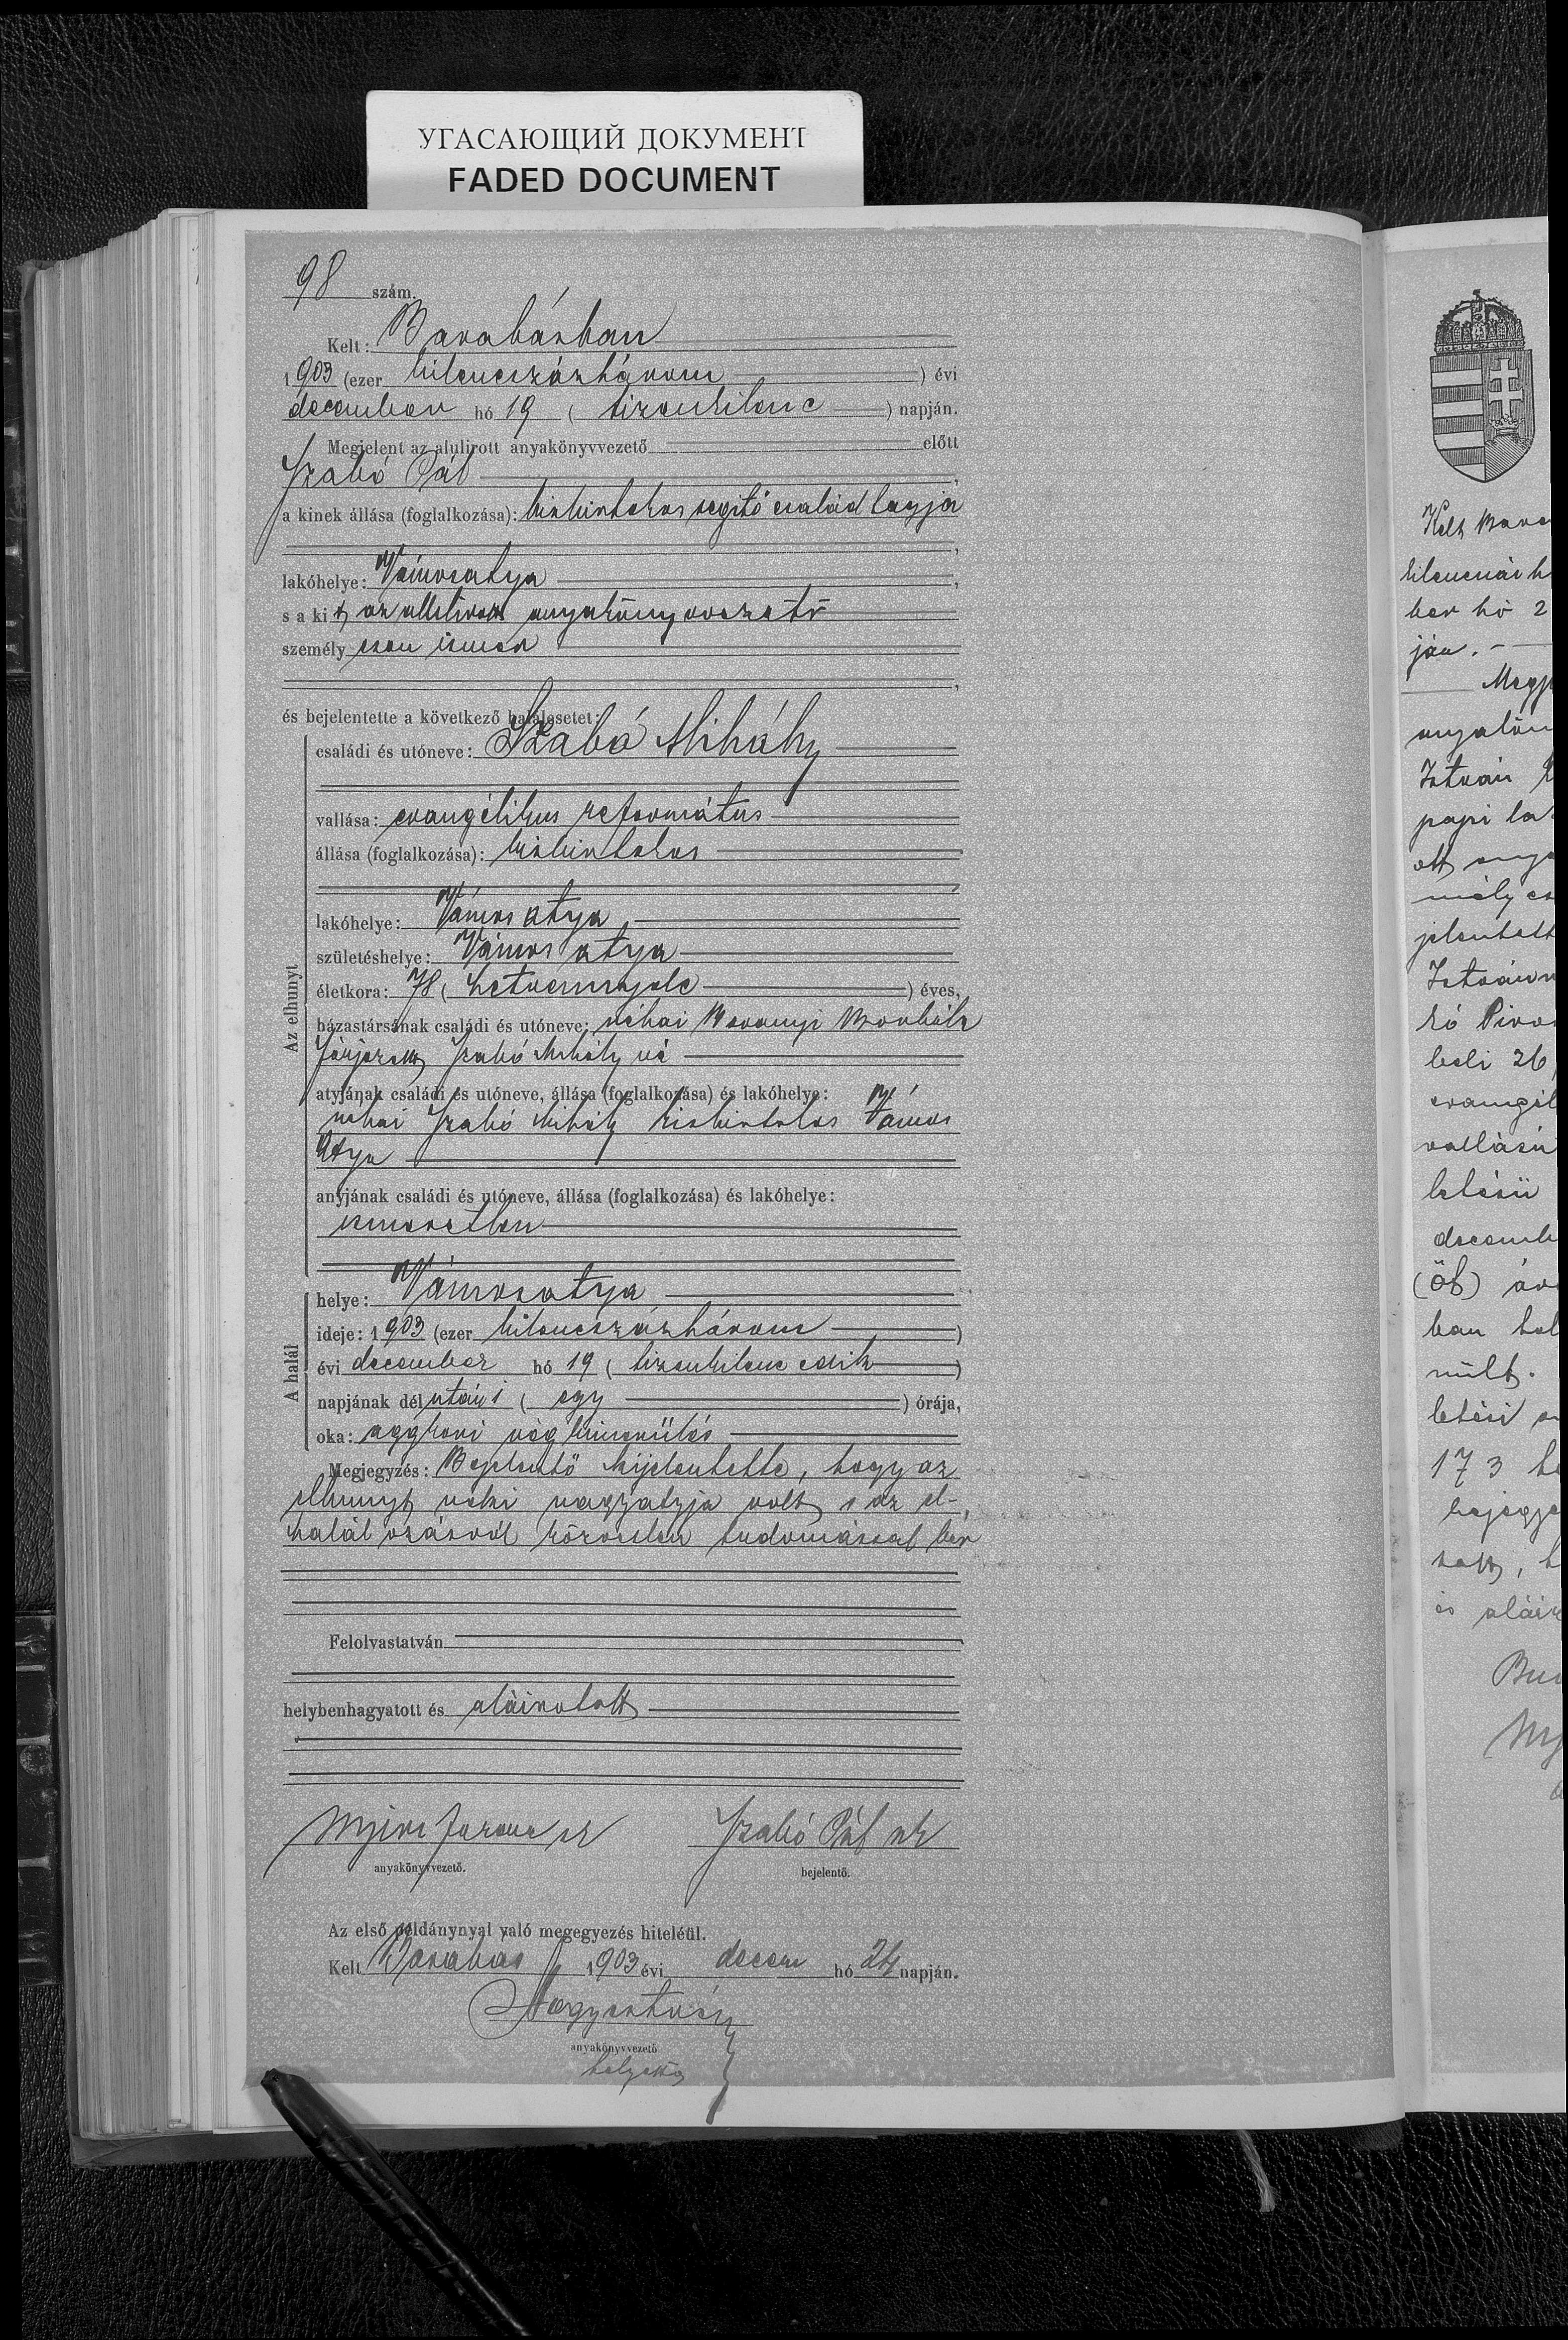 УГАСАЮЩИЙ ДОКУМЕНТ
FADED DOCUMENT
98 szám.
Kelt: Barabásban
1903 (ezer kilencszázhárom) évi
december hó 19 (tizenkilenc) napján.
Megjelent az alulirott anyakönyvvezető előtt
Szabó Pál,
a kinek állása (foglalkozása): kisbirtokos segitő család tagja
lakóhelye: Vámosatya,
s a kit az anyakönyvvezető
személyesen ismer
és bejelentette a következő halálesetet:
Az elhunyt
családi és utóneve: Szabó Mihály
vallása: evangélikus református
állása (foglalkozása): kisbirtokos
lakóhelye: Vámos atya
születéshelye: Vámos atya
életkora: 78 (hetvennyolc) éves,
házastársának családi és utóneve: néhai Baranyi Borbála
férjezett Szabó Mihály né
atyjának családi és utóneve, állása (foglalkozása) és lakóhelye:
néhai Szabó Mihály kisbirtokos Vámos
Atya
anyjának családi és utóneve, állása (foglalkozása) és lakóhelye:
ismeretlen
A halál
helye: Vámosatya
ideje: 1903 (ezer kilencszázhárom)
évi december hó 19 (tizenkilenc edik)
napjának dél utáni (egy) órája,
oka: aggkori végkimerülés
Megjegyzés: Bejelentő kijelentette, hogy az
elhunyt neki nagyatyja volt s az el-
halálozásról közvetlen tudomással bir
Felolvastatván
helybenhagyatott és aláiratott
Nyiri Ferenc sk Szabó Pál sk
anyakönyvvezető. bejelentő.
Az első példánynyal való megegyezés hiteléül.
Kelt Barabás 1903 évi decem hó 24 napján.
anyakönyvvezető
helyettes
Kelt Bara
kilencszáz h
ber hó 2
ján.
Megje
anyakön
István
papi lak
ott anya
mély es
jelentett
Istvánn
Piros
beli 26
evangél
vallású
letésü
decemb
(öt) óra
ban hal
mült.
letési a
173
bejegyz
tatt, h
és aláir